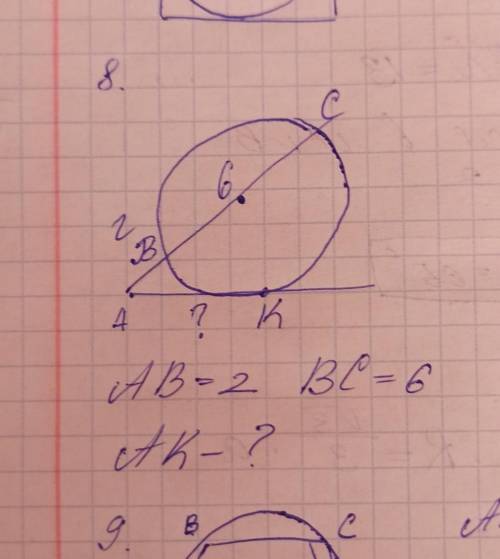 8.
C
6
2
B
A
?
K
AB=2 BC=6
AK-?
9.
B
C
A